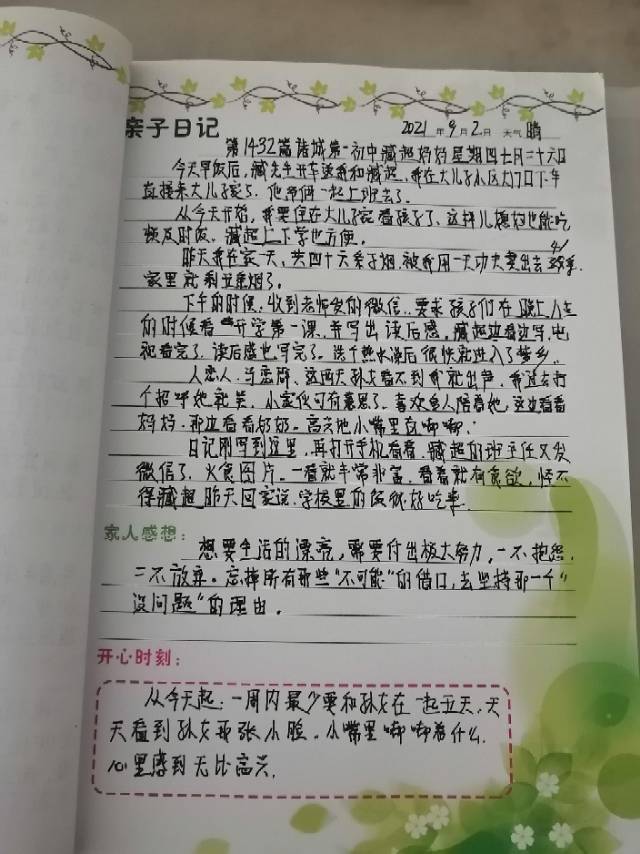 亲子日记 2021年9月2日 天气 晴
第1432篇 诸城第一初中臧超妈妈 星期四 七月二十六日
今天早饭后,臧先生开车送我和臧超,我在大儿子小区大门口下车
直接来大儿子家了。他爷俩一起上班去了。
从今天开始,我要住在大儿子家看孩子了,这样儿媳妇也能吃
顿及时饭。臧超上下学也方便。
昨天我在家一天,共四十六条子烟,被我用一天功夫卖出去41条
家里就剩五条烟了。
下午的时候,收到老师发的微信,要求孩子们在晚上八点
的时候看开学第一课,并写出读后感。臧超边看边写,也
把看完了,读后感也写完了。洗个热水澡后很快就进入了梦乡。
人恋人,当恋群。这两天孙女看不到我就出声,我过去打
个招呼她就笑,小家伙可有意思了。喜欢多人陪着她,这边看看
妈妈,那边看看奶奶。高兴地小嘴里直唧唧。
日记刚写到这里,再打开手机看看,臧超的班主任又发
微信了,伙食图片。一看就丰常非富,看看就有食欲,怪不
得臧超昨天回家说,学校里的饭很好吃来。
家人感想:
想要生活的漂亮,需要付出极大努力,一不抱怨,
二不放弃。忘掉所有那些"不可能"的借口,去坚持那一个"
没问题"的理由。
开心时刻:
从今天起:一周内最少要和孙女在一起五天,天
天看到孙女那张小脸。小嘴里唧唧着什么.
心里感到无比高兴.